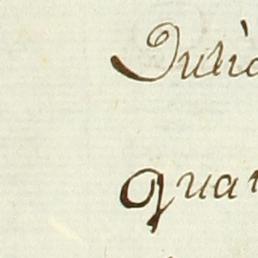 Julia
quan